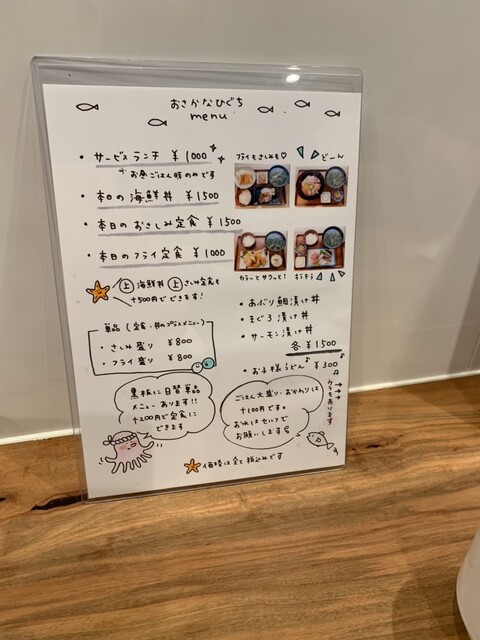 おさかなひぐち
menu
・サービスランチ ¥1000
お昼ごはん時のみです
・本日の海鮮丼 ¥1500
・本日のおさしみ定食 ¥1500
・本日のフライ定食 ¥1000
上 海鮮丼 上 さしみ定食も
+500円でできます!
単品(定食・丼のプラスメニュー)
・さしみ盛り ¥800
・フライ盛り ¥800
黒板に日替単品
メニューあります!!
+200円で定食に
できます
フライもさしみも♡
どーん
カラッとサクッと!
キラキラ
・あぶり鯛漬け丼
・まぐろ漬け丼
・サーモン漬け丼
各¥1500
・お子様うどん ¥300
ウラもあります
ごはん大盛り・おかわりは
+100円です。
お水はセルフで
お願いします
価格は全て税込みです